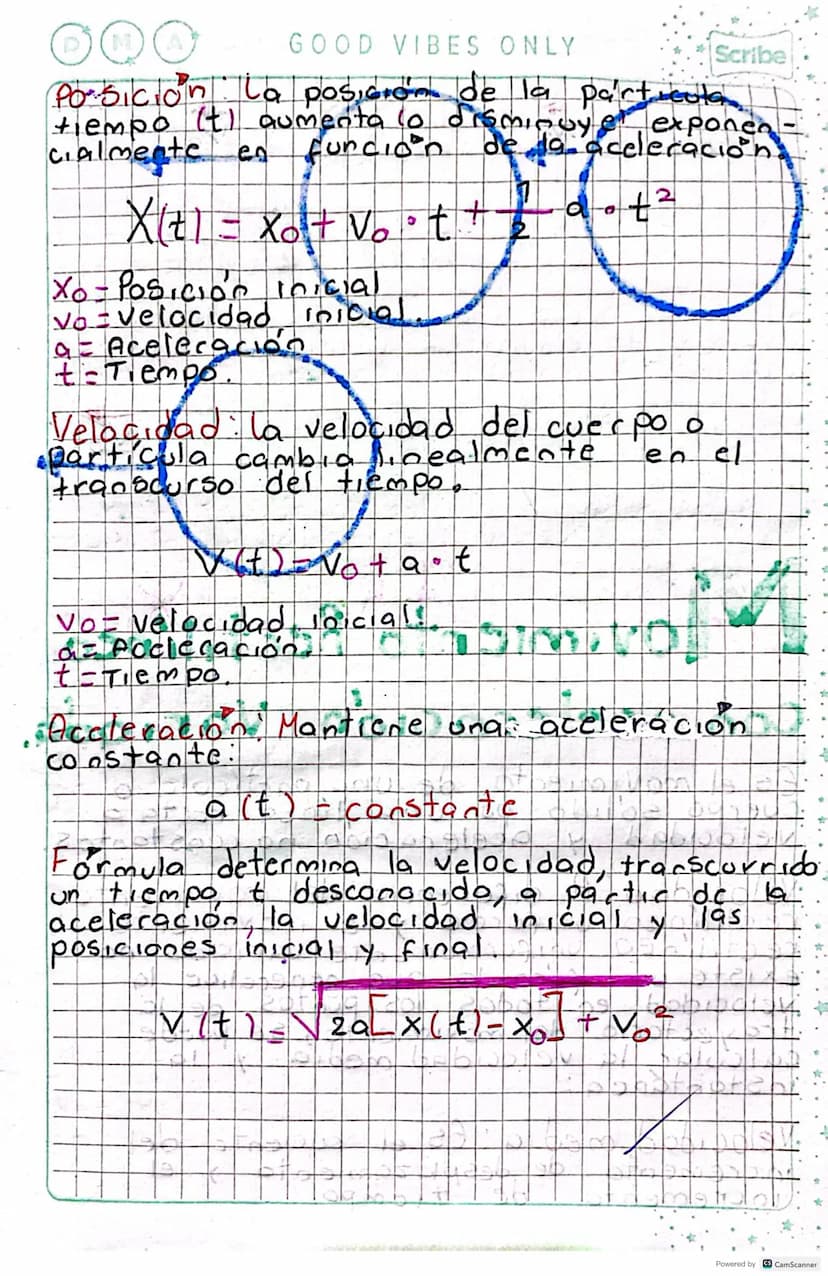 D M A
GOOD VIBES ONLY
Scribe
Posición: La posición de la partícula
tiempo (t) aumenta (o disminuye) exponen-
cialmente en función de la aceleración.
X(t) = x₀ + v₀ · t + 1/2 a · t²
x₀ = Posición inicial
v₀ = velocidad inicial.
a = Aceleración
t = Tiempo.
Velocidad: la velocidad del cuerpo o
partícula cambia linealmente en el
transcurso del tiempo.
V(t) = V₀ + a · t
v₀ = velocidad inicial.
a = Aceleración.
t = Tiempo.
Aceleración: Mantiene una aceleración
constante:
a(t) = constante
Fórmula determina la velocidad, transcurrido
un tiempo t desconocido, a partir de la
aceleración, la velocidad inicial y las
posiciones inicial y final.
V(t) = √2a[x(t) - x₀] + V₀²
Powered by CS CamScanner